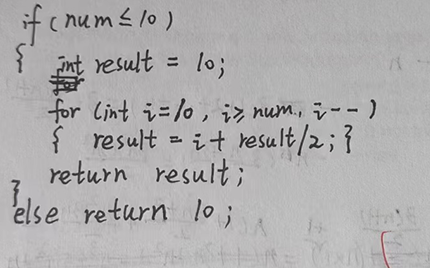 if (num ≤ 10)
{ int result = 10;
for (int i=10, i≥num, i--)
{ result = i + result/2; }
return result;
}
else return 10;